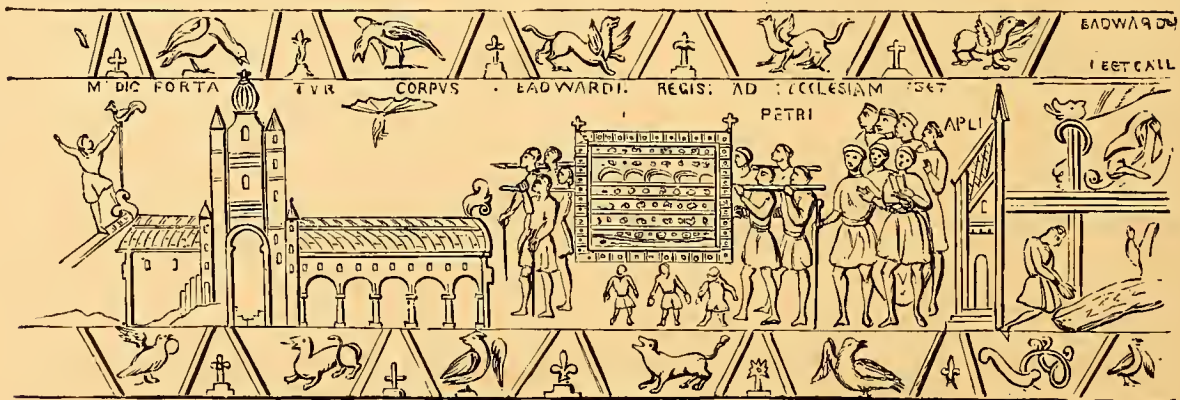 EADWARDU
M DIC PORTA TVR CORPVS . EADWARDI. REGIS: AD : ECCLESIAM SET
PETRI APLI